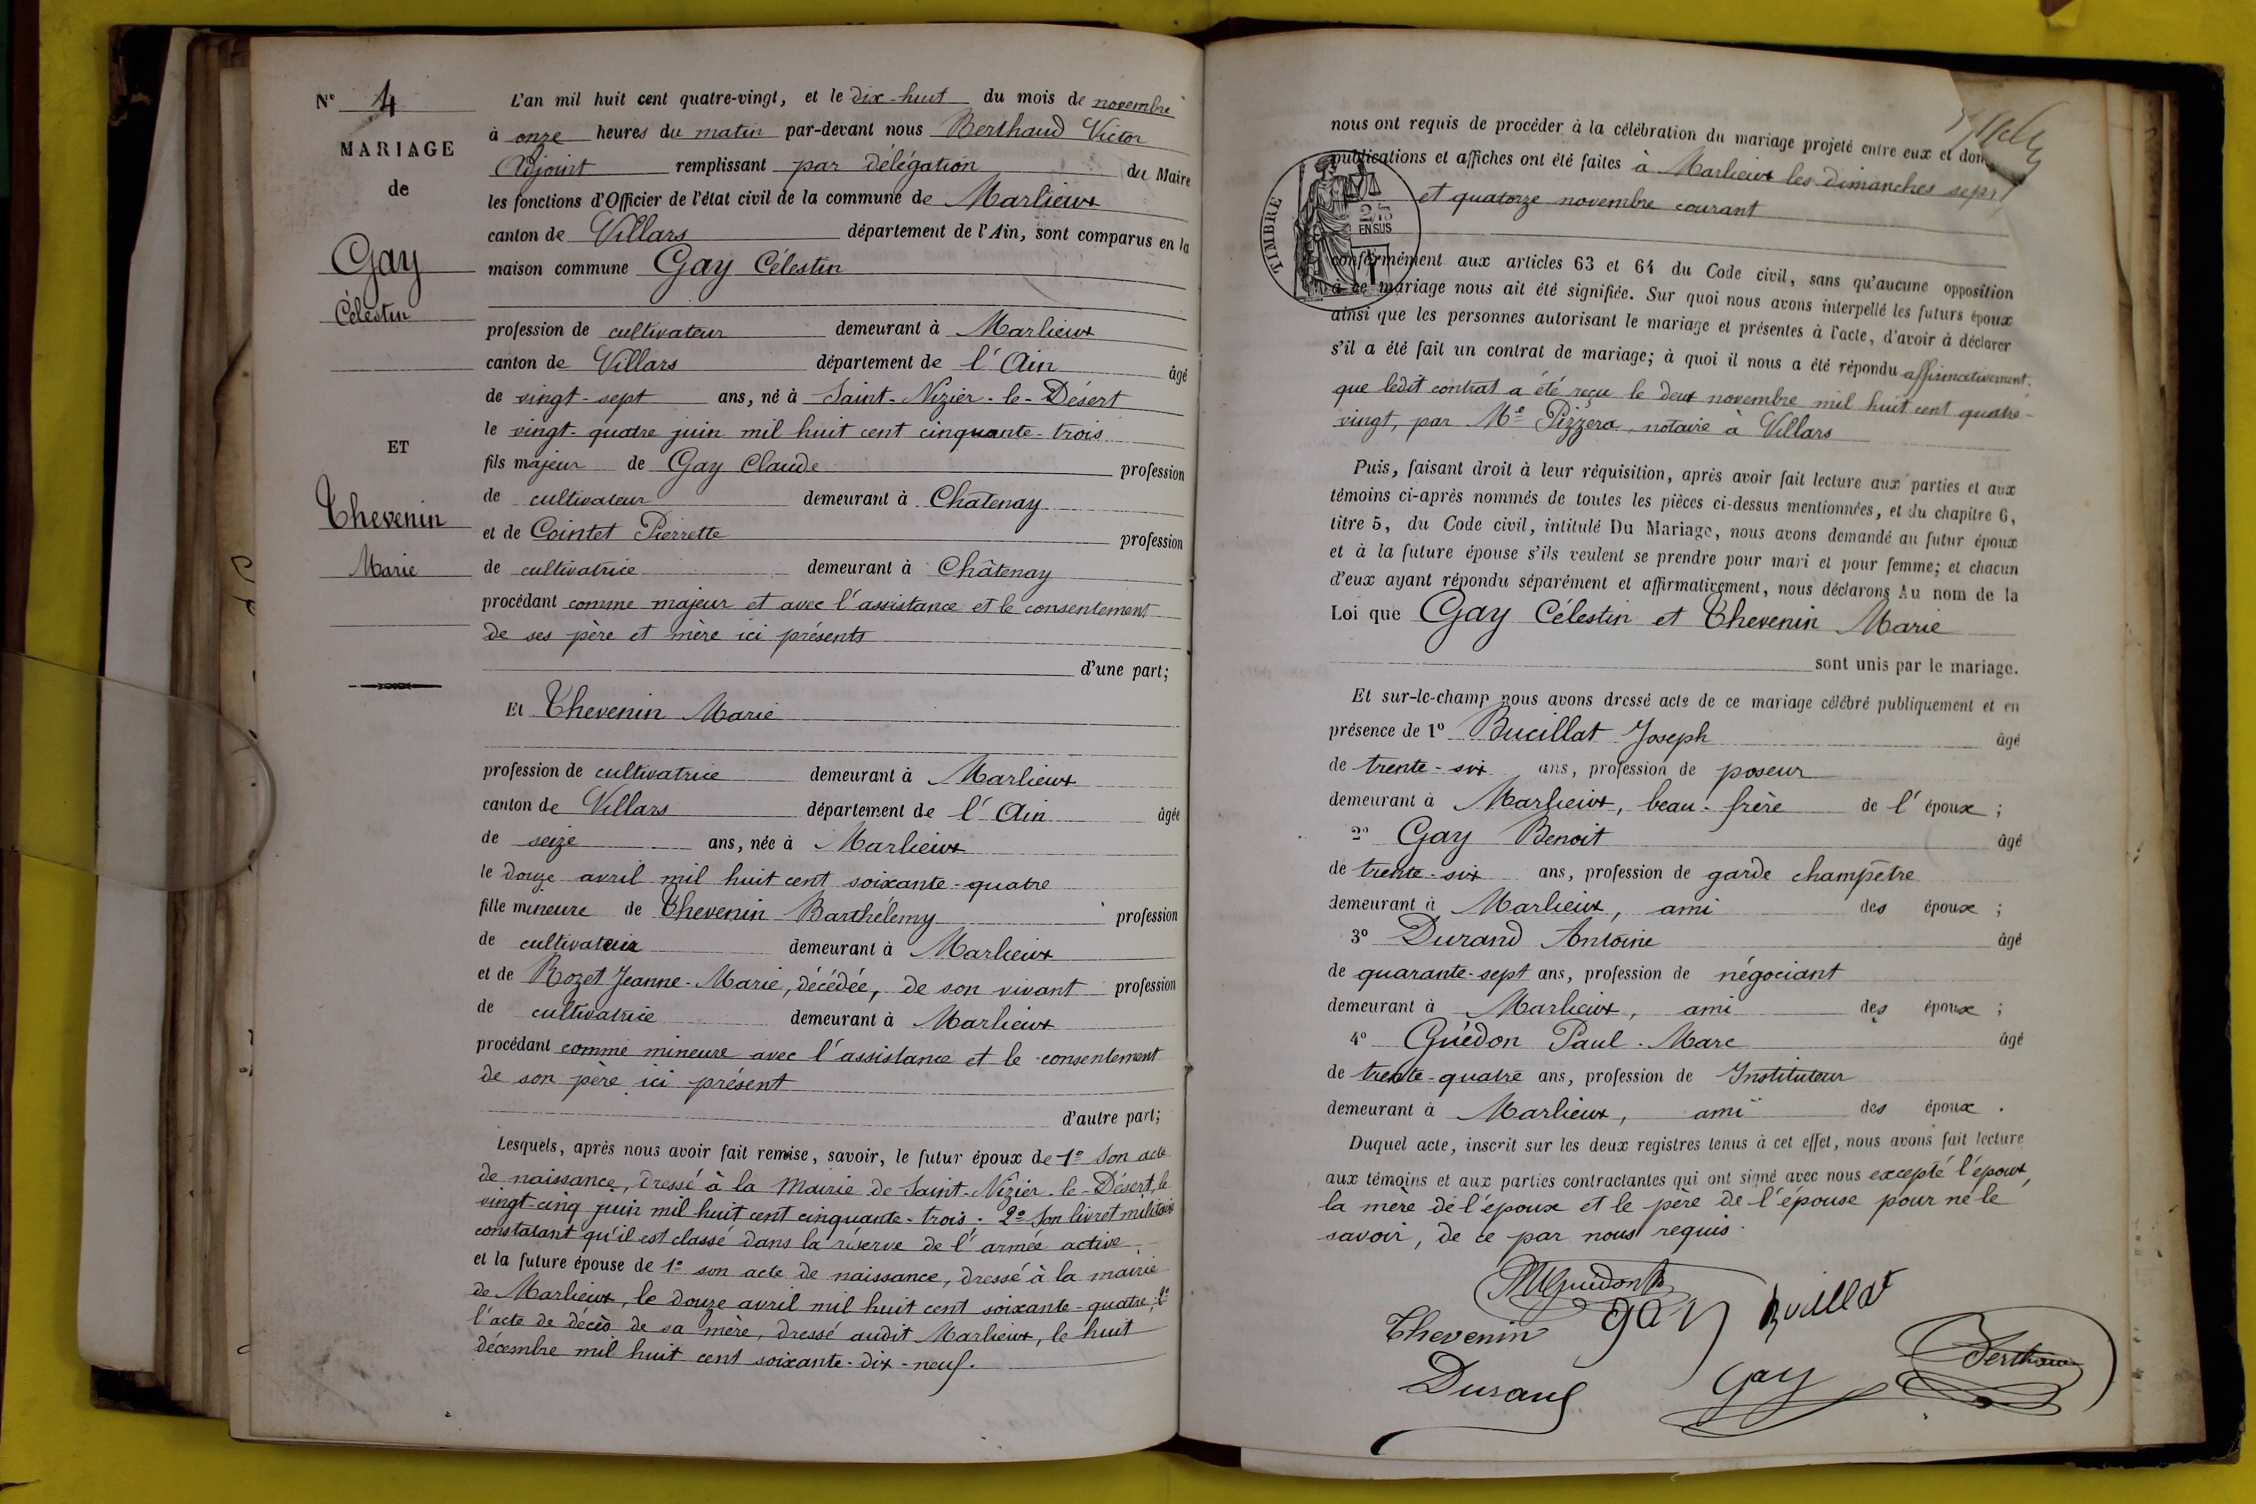 N° 4
MARIAGE
de
Gay
Célestin
ET
Thevenin
Marie
L'an mil huit cent quatre-vingt, et le dix-huit du mois de novembre
à onze heures du matin par-devant nous Berthaud Victor
Adjoint remplissant par délégation du Maire
les fonctions d'Officier de l'état civil de la commune de Marlieux
canton de Villars département de l'Ain, sont comparus en la
maison commune Gay Célestin
profession de cultivateur demeurant à Marlieux
canton de Villars département de l'Ain âgé
de vingt-sept ans, né à Saint-Nizier-le-Désert
le vingt-quatre juin mil huit cent cinquante-trois
fils majeur de Gay Claude profession
de cultivateur demeurant à Châtenay
et de Cointet Pierrette profession
de cultivatrice demeurant à Châtenay
procédant comme majeur et avec l'assistance et le consentement
de ses père et mère ici présents
d'une part;
Et Thevenin Marie
profession de cultivatrice demeurant à Marlieux
canton de Villars département de l'Ain âgée
de seize ans, née à Marlieux
le douze avril mil huit cent soixante-quatre
fille mineure de Thevenin Barthélemy profession
de cultivateur demeurant à Marlieux
et de Rozet Jeanne-Marie, décédée, de son vivant profession
de cultivatrice demeurant à Marlieux
procédant comme mineure avec l'assistance et le consentement
de son père ici présent
d'autre part;
Lesquels, après nous avoir fait remise, savoir, le futur époux de 1° Son acte
de naissance, dressé à la Mairie de Saint-Nizier-le-Désert, le
vingt-cinq juin mil huit cent cinquante-trois. 2° Son livret militaire
constatant qu'il est classé dans la réserve de l'armée active.
et la future épouse de 1° son acte de naissance, dressé à la mairie
de Marlieux, le douze avril mil huit cent soixante-quatre; 2°
l'acte de décès de sa mère, dressé audit Marlieux, le huit
décembre mil huit cent soixante-dix-neuf.
nous ont requis de procéder à la célébration du mariage projeté entre eux et dont
publications et affiches ont été faites à Marlieux les dimanches sept
et quatorze novembre courant
TIMBRE
2/5
EN SUS
conformément aux articles 63 et 64 du Code civil, sans qu'aucune opposition
à ce mariage nous ait été signifiée. Sur quoi nous avons interpellé les futurs époux
ainsi que les personnes autorisant le mariage et présentes à l'acte, d'avoir à déclarer
s'il a été fait un contrat de mariage; à quoi il nous a été répondu affirmativement.
que ledit contrat a été reçu le deux novembre mil huit cent quatre-
vingt, par Me Pizzera, notaire à Villars
Puis, faisant droit à leur réquisition, après avoir fait lecture aux parties et aux
témoins ci-après nommés de toutes les pièces ci-dessus mentionnées, et du chapitre 6,
titre 5, du Code civil, intitulé Du Mariage, nous avons demandé au futur époux
et à la future épouse s'ils veulent se prendre pour mari et pour femme; et chacun
d'eux ayant répondu séparément et affirmativement, nous déclarons Au nom de la
Loi que Gay Célestin et Thevenin Marie
sont unis par le mariage.
Et sur-le-champ nous avons dressé acte de ce mariage célébré publiquement et en
présence de 1° Bucillat Joseph âgé
de trente-six ans, profession de poseur
demeurant à Marlieux, beau-frère de l'époux;
2° Gay Benoit âgé
de trente-six ans, profession de garde champêtre
demeurant à Marlieux, ami des époux;
3° Durand Antoine âgé
de quarante-sept ans, profession de négociant
demeurant à Marlieux, ami des époux;
4° Guédon Paul-Marc âgé
de trente-quatre ans, profession de Instituteur
demeurant à Marlieux, ami des époux.
Duquel acte, inscrit sur les deux registres tenus à cet effet, nous avons fait lecture
aux témoins et aux parties contractantes qui ont signé avec nous excepté l'époux,
la mère de l'époux et le père de l'épouse pour ne le
savoir, de ce par nous requis.
Thevenin gay
Durand Gay Berthaud